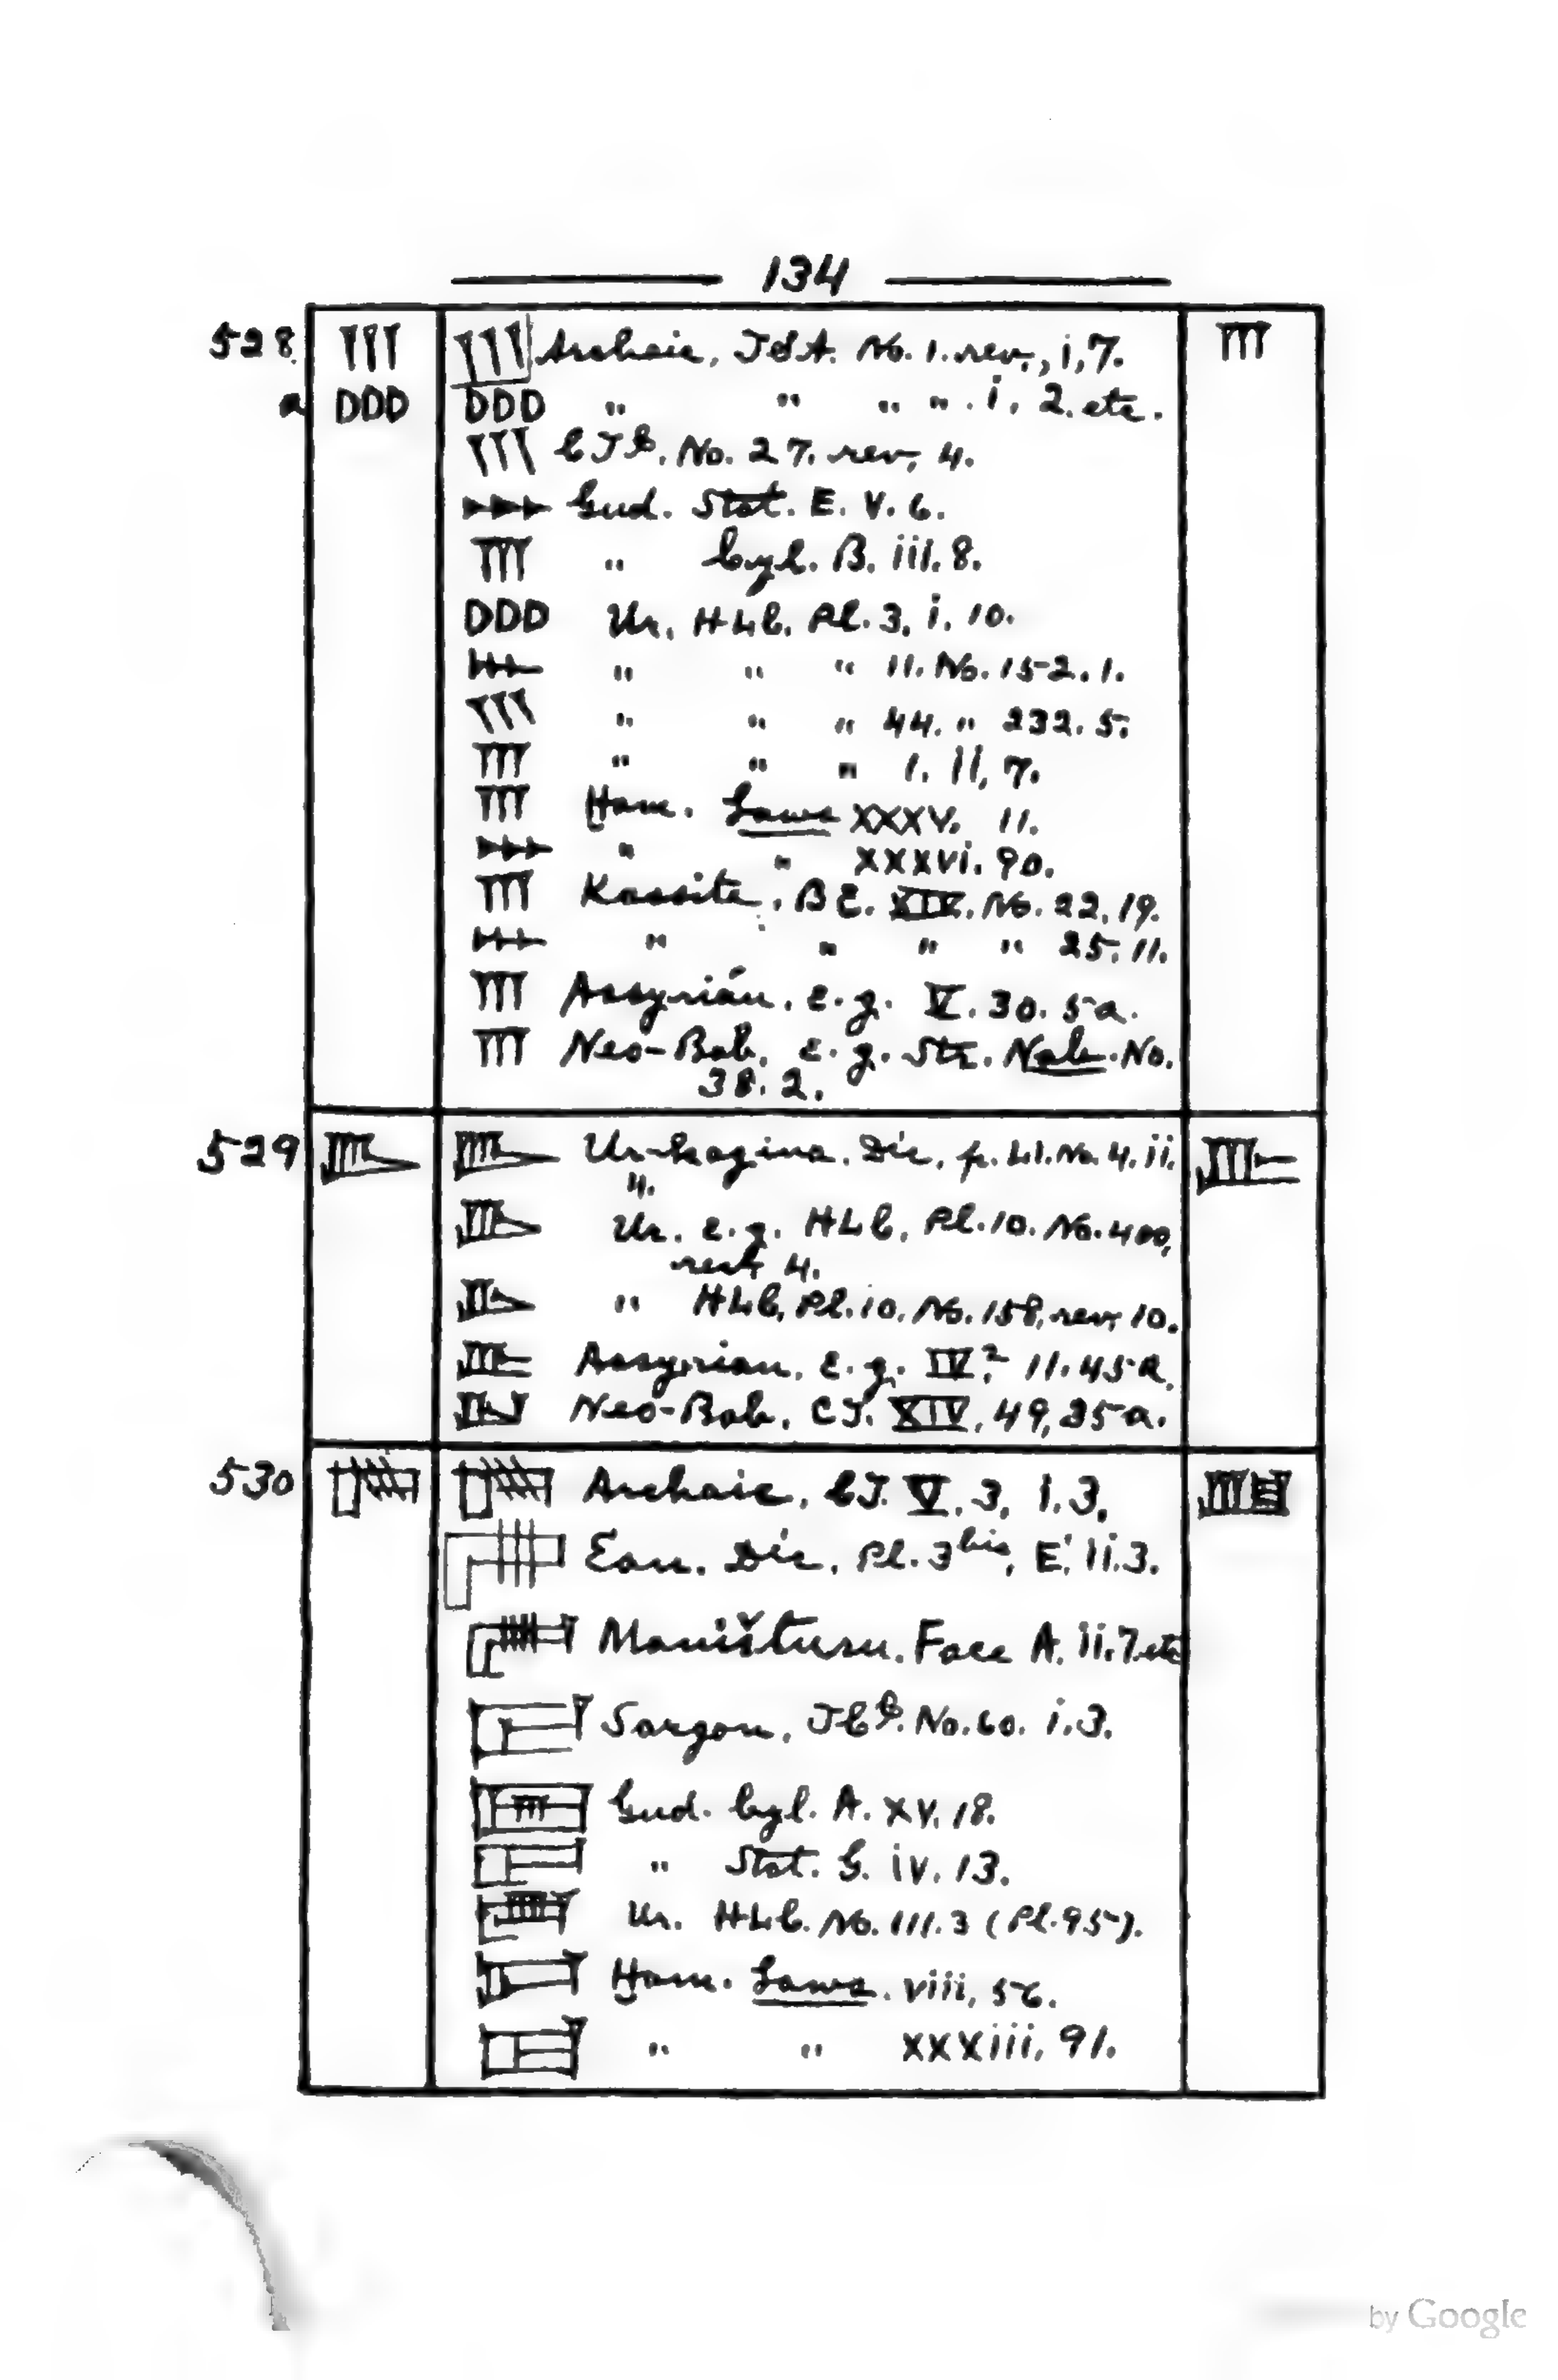 134
528 𒐈 Archaic, TSA. No. 1. rev., i, 7. 𒐈
a DDD DDD " " " " . i, 2. etc.
CTB. No. 27. rev. 4.
Gud. Stat. E. V. 6.
" Cyl. B. iii. 8.
DDD Ur. HLC. Pl. 3, i. 10.
" " " 11. No. 152. 1.
" " " 44. " 232. 5.
" " " 1. II, 7.
Ḫam. Laws XXXV. 11.
" " XXXVI. 90.
Kassite, BE. XIV. No. 22, 19.
" " " " 25. 11.
Assyrian, e.g. V. 30. 5a.
Neo-Bab. e.g. Str. Nab. No.
38. 2.
529 Ur-kagina. Déc, p. LI. No. 4. ii.
4.
Ur. e.g. HLC, Pl. 10. No. 400,
4.
" HLC, Pl. 10. No. 158, rev. 10.
Assyrian, e.g. IV.² 11. 45a.
Neo-Bab. CT. XIV, 49, 35a.
530 Archaic, CT. V. 3, i. 3,
Ean. Déc, Pl. 3bis, E', ii. 3.
Maništusu. Face A. ii. 7. etc
Sargon, No. 60. i. 3.
Gud. Cyl. A. XV. 18.
" Stat. G. iv. 13.
Ur. HLC. No. 111. 3 (Pl. 95).
Ḫam. Laws. viii, 56.
" " XXXiii, 91.
by Google